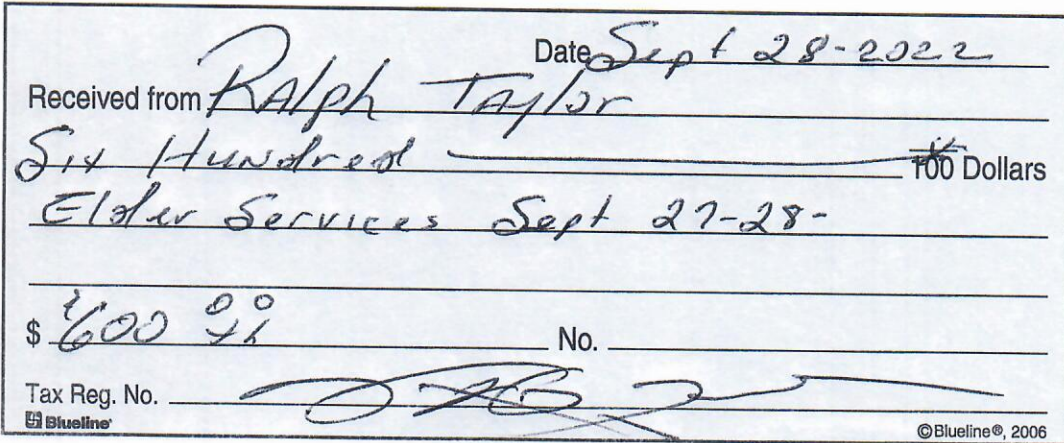 Date Sept 28-2022
Received from RAlph TAylor
Six Hundred 100 Dollars
Elder Services Sept 27-28-
$ 600 00 No.
Tax Reg. No.
Blueline ©Blueline®, 2006